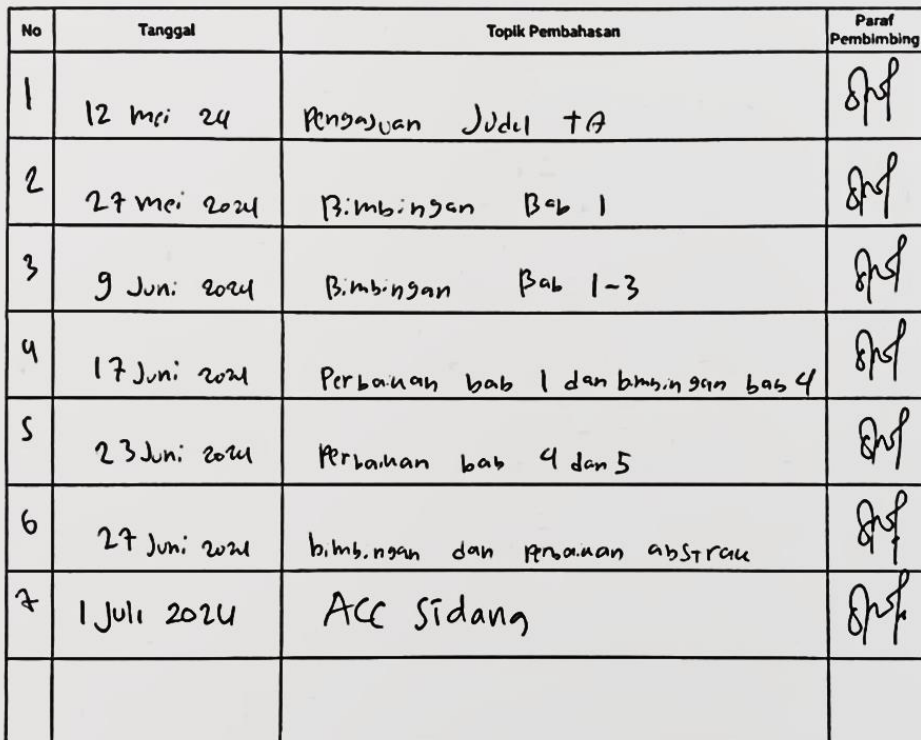 No Tanggal Topik Pembahasan Paraf Pembimbing
1 12 mei 24 Pengajuan Judul TA
2 27 mei 2024 Bimbingan Bab 1
3 9 Juni 2024 Bimbingan Bab 1-3
4 17 Juni 2024 Perbaikan bab 1 dan bimbingan bab 4
5 23 Juni 2024 Perbaikan bab 4 dan 5
6 27 Juni 2024 bimbingan dan perbaikan abstrak
7 1 Juli 2024 ACC Sidang